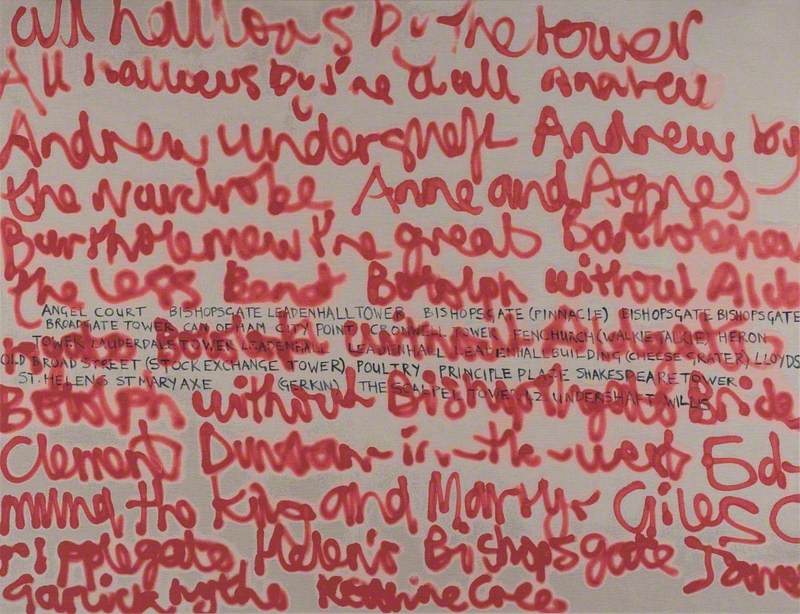 all hallows by The tower
All hallows by The Wall Andrew
Andrew undershaft Andrew by
the wardrobe Anne and Agnes
Bartholemew The great Bartholemew
the less Benet Botolph without Alder
ANGEL COURT BISHOPSGATE LEADENHALL TOWER BISHOPSGATE (PINNACLE) BISHOPSGATE BISHOPSGATE
BROADGATE TOWER CAN OF HAM CITY POINT CROMWELL TOWER FENCHURCH (WALKIE TALKIE) HERON
TOWER LAUDERDALE TOWER LEADENHALL LEADENHALL LEADENHALL BUILDING (CHEESE GRATER) LLOYDS
OLD BROAD STREET (STOCK EXCHANGE TOWER) POULTRY PRINCIPLE PLACE SHAKESPEARE TOWER
ST. HELENS ST MARY AXE (GERKIN) THE SCALPEL TOWER 42 UNDERSHAFT WILLIS
Botolph without Bishopsgate Bride
Clement Dunstan-in-the-west Ed-
mund the King and Martyr Giles C
ripplegate Helen's Bishopsgate James
Garlickhythe Katherine Cree